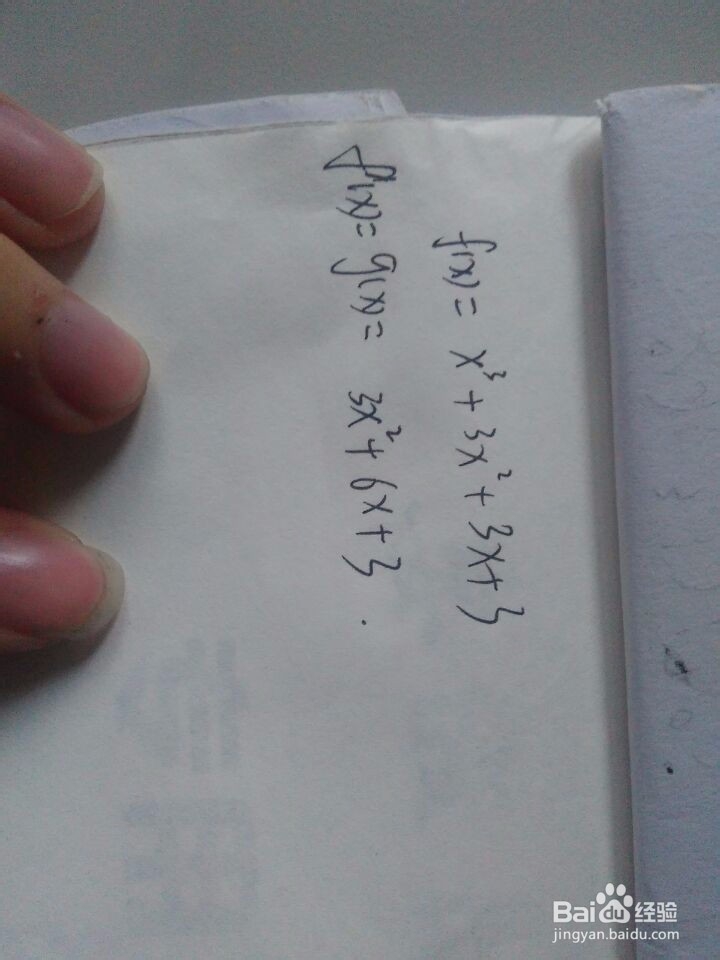 f(x)= x³+3x²+3x+3
f'(x)= g(x)= 3x²+6x+3.
Baidu经验
jingyan.baidu.com